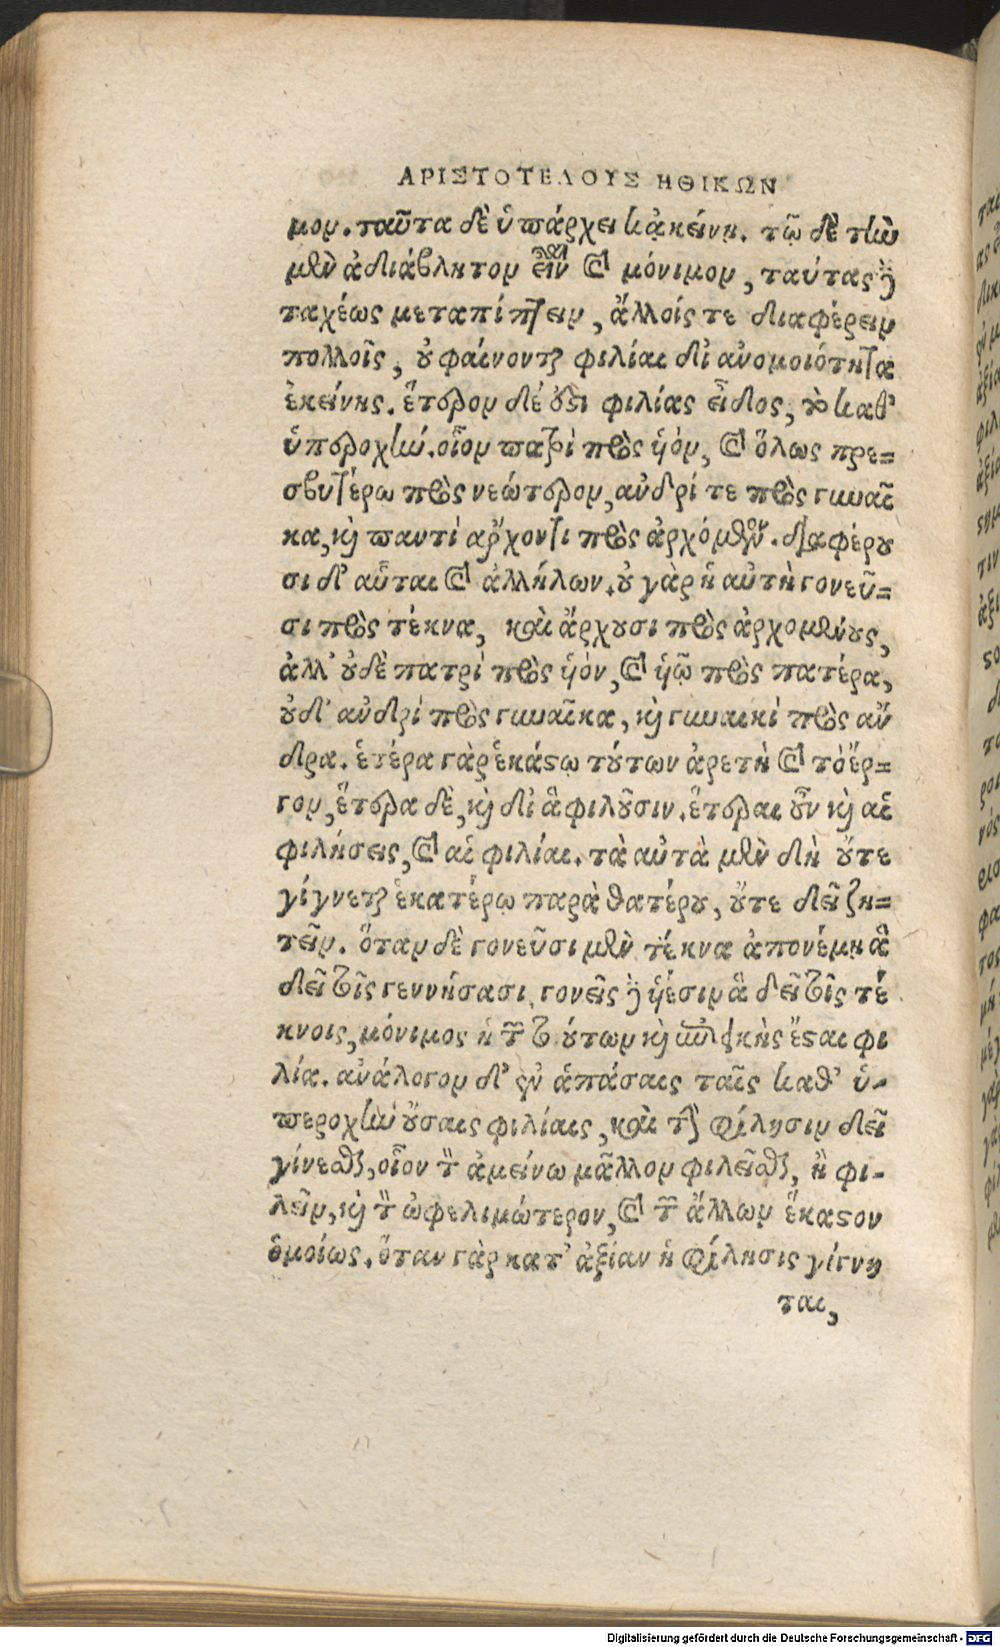 ΑΡΙΣΤΟΤΕΛΟΥΣ ΗΘΙΚΩΝ
μον. ταῦτα δὲ ὑπάρχει κᾀκείνῃ. τῷ δὲ τὴν
μὲν ἀδιάβλητον εἶναι καὶ μόνιμον, ταύτας δὲ
ταχέως μεταπίπτειν, ἄλλοίς τε διαφέρειν
πολλοῖς, οὐ φαίνονται φιλίαι δἰ ἀνομοιότητα
ἐκείνης. ἕτερον δέ ὅδι φιλίας εἶδος, τὸ καθ'
ὑπεροχὴν. οἷον πατρὶ πρὸς ὑόν, καὶ ὅλως πρε=
σβυτέρῳ πρὸς νεώτερον, ανδρί τε πρὸς γυναῖ
κα, καὶ παντὶ αρχοντι πρὸς ἀρχόμενον. διαφέρου
σι δ' αὗται καὶ ἀλλήλων. οὐ γὰρ ἡ αὐτὴ γονεῦ=
σι πρὸς τέκνα, καὶ ἄρχουσι πρὸς ἀρχομένους,
ἀλλ' οὐδὲ πατρὶ πρὸς ὑόν, καὶ ὑῷ πρὸς πατέρα,
οὐδ' ανδρί πρὸς γυναῖκα, καὶ γυναικί πρὸς αν
δρα. ἑτέρα γὰρ ἑκάστῳ τούτων ἀρετὴ καὶ τὸ ἔρ=
γον, ἕτερα δὲ, καὶ δἰ ἃ φιλοῦσιν. ἕτεραι οὖν καὶ αἱ
φιλήσεις, καὶ αἱ φιλίαι. τὰ αὐτὰ μὲν δὴ οὔτε
γίγνεται ἑκατέρῳ παρὰ θατέρου, οὔτε δεῖ ζη=
τεῖν. ὅταν δὲ γονεῦσι μὲν τέκνα ἀπονέμῃ ἃ
δεῖ τοῖς γεννήσασι, γονεῖς δὲ ὑέσιν ἃ δεῖ τοῖς τέ
κνοις, μόνιμος ἡ τῶν τοιούτων καὶ ἐπιεικὴς ἔσται φι
λία. ανάλογον δ' ἐν ἁπάσαις ταῖς καθ' ὑ-
περοχὴν οὔσαις φιλίαις, καὶ τὴν φίλησιν δεῖ
γίνεσθαι, οἷον τὸν ἀμείνω μᾶλλον φιλεῖσθαι, ἢ φι-
λεῖν, καὶ τὸν ὠφελιμώτερον, καὶ τῶν ἄλλων ἕκαστον
ὁμοίως. ὅταν γὰρ κατ' ἀξίαν ἡ φίλησις γίγνη
ται,
Digitalisierung gefördert durch die Deutsche Forschungsgemeinschaft - DFG